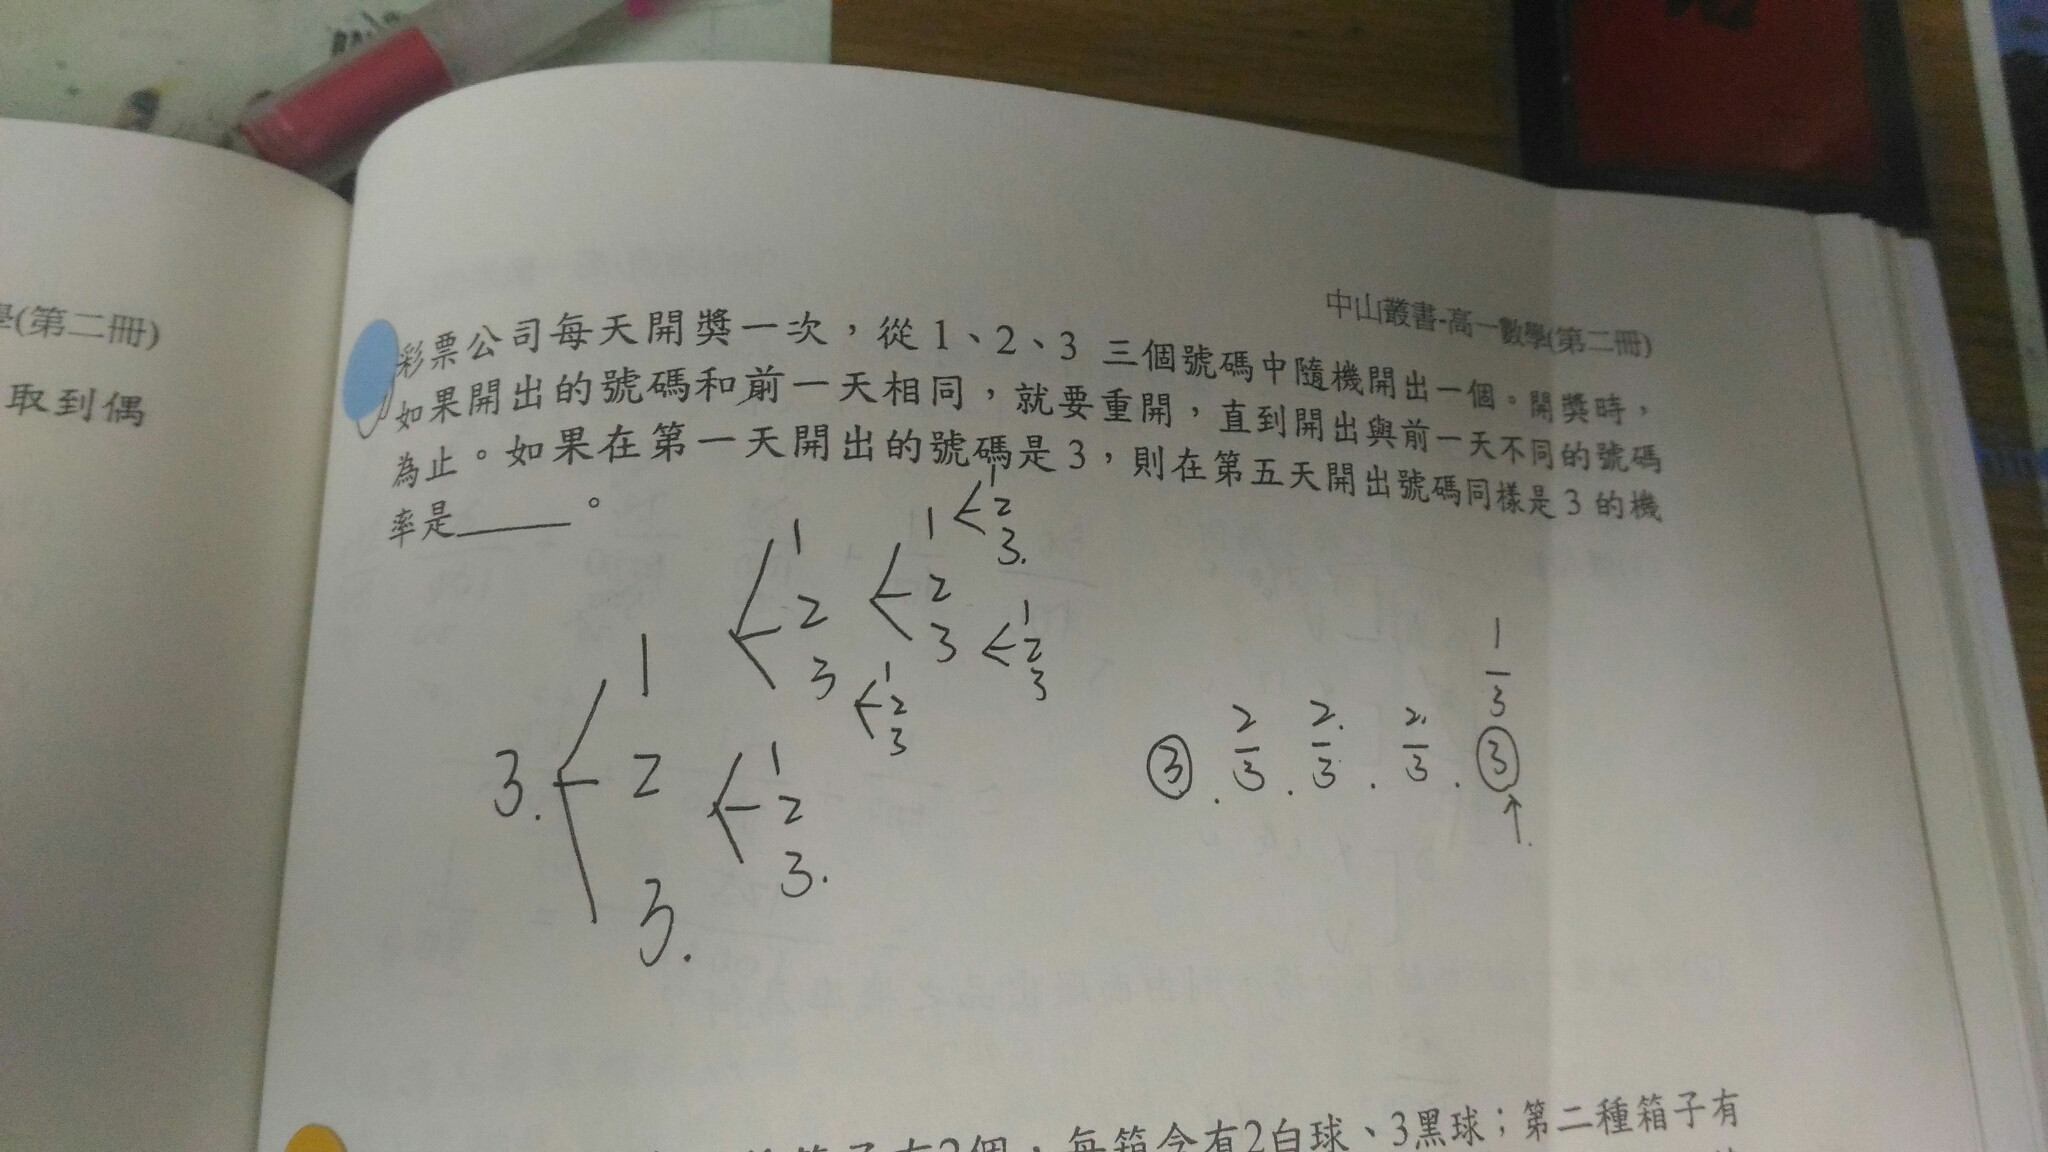 學(第二冊)
取到偶
中山叢書-高一數學(第二冊)
彩票公司每天開獎一次，從1、2、3 三個號碼中隨機開出一個。開獎時，
如果開出的號碼和前一天相同，就要重開，直到開出與前一天不同的號碼
為止。如果在第一天開出的號碼是3，則在第五天開出號碼同樣是3的機
率是______。
3.
1
2
3.
1
2
3
1
2
3.
1
2
3
1
2
3
1
2
3.
1
2
3
③ . 2/3 . 2/3 . 2/3 . ③ 1/3
箱子有2個，每箱含有2白球、3黑球；第二種箱子有